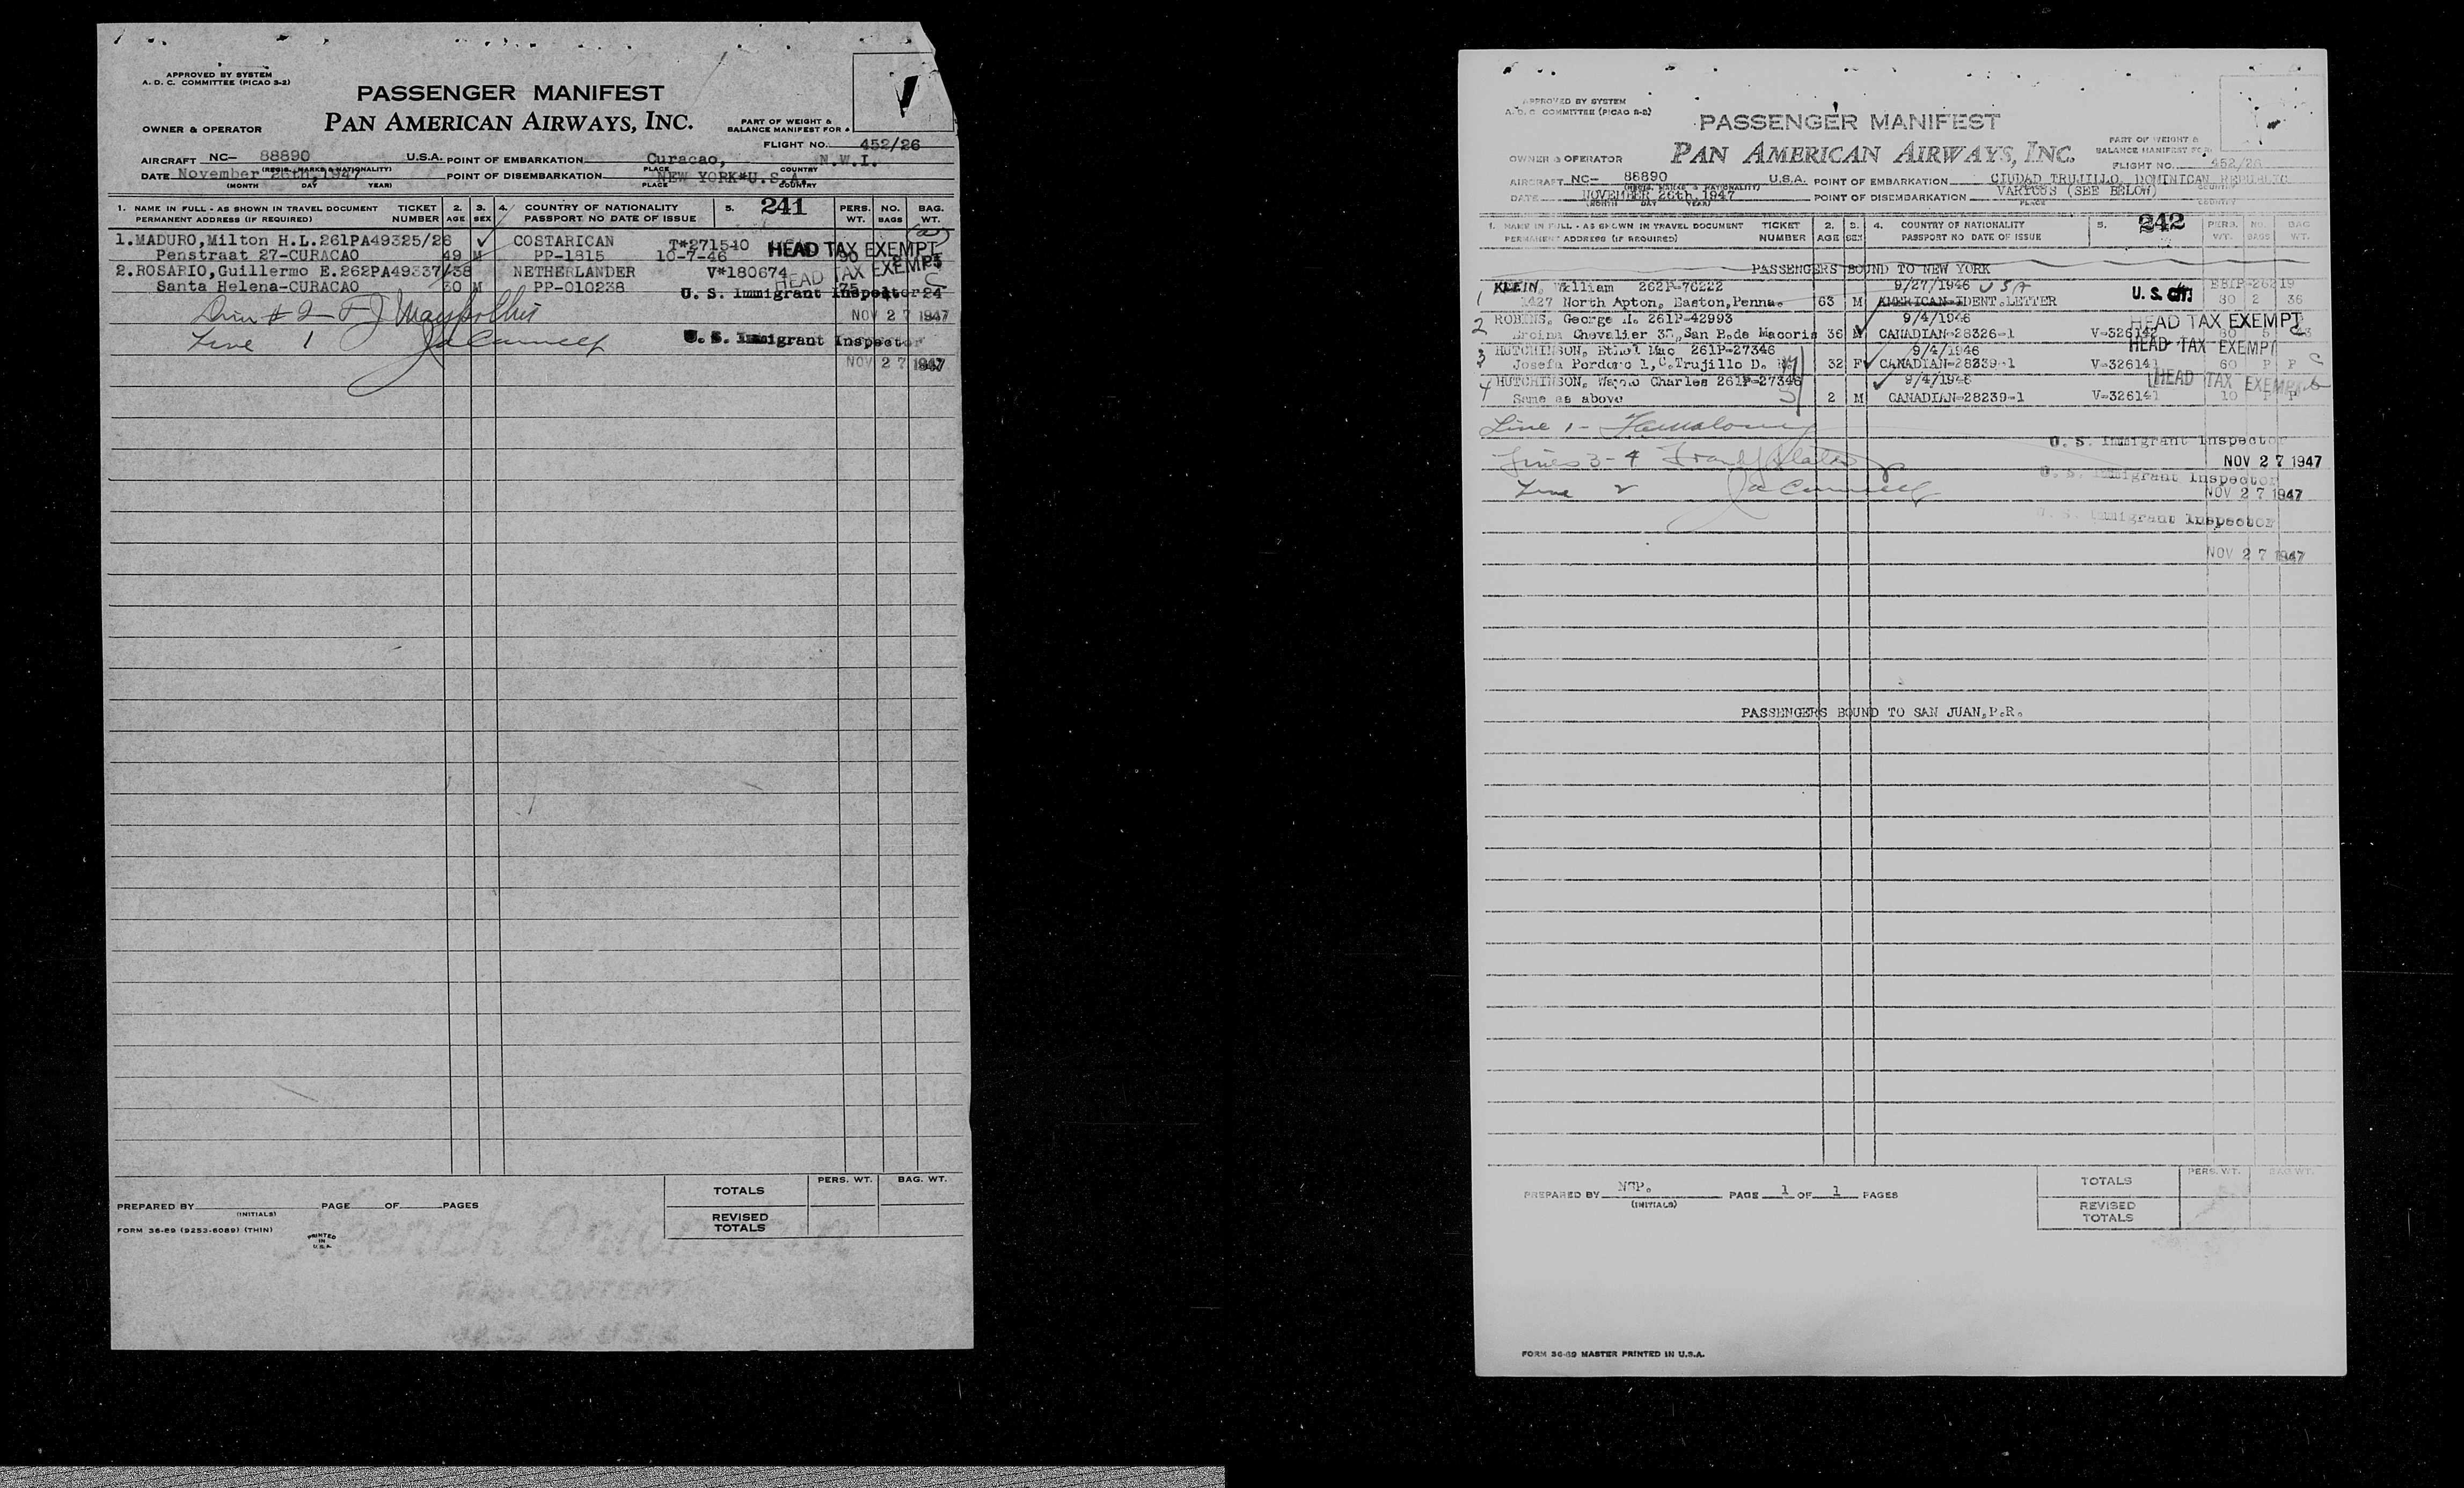 APPROVED BY SYSTEM
A. D. C. COMMITTEE (PICAO S-2)
PASSENGER MANIFEST
PAN AMERICAN AIRWAYS, INC.
OWNER & OPERATOR
PART OF WEIGHT &
BALANCE MANIFEST FOR
FLIGHT NO. 452/26
AIRCRAFT NC- 88890 U.S.A. POINT OF EMBARKATION Curacao, N.W.I.
(REGIS. MARKS & NATIONALITY) PLACE COUNTRY
DATE November 26th, 1947 POINT OF DISEMBARKATION NEW YORK*U.S.A.
(MONTH DAY YEAR) PLACE COUNTRY
1. NAME IN FULL - AS SHOWN IN TRAVEL DOCUMENT TICKET 2. 3. 4. COUNTRY OF NATIONALITY 5. 241 PERS. NO. BAG.
PERMANENT ADDRESS (IF REQUIRED) NUMBER AGE SEX PASSPORT NO DATE OF ISSUE WT. BAGS WT.
1.MADURO,Milton H.L.261PA49325/26 COSTARICAN T*271540 HEAD TAX EXEMPT
Penstraat 27-CURACAO 49 M PP-1815 10-7-46 90
2.ROSARIO,Guillermo E.262PA49337/38 NETHERLANDER V*180674 HEAD TAX EXEMPT
Santa Helena-CURACAO 30 M PP-010238 75 24
U. S. Immigrant Inspector
NOV 27 1947
Line 1
U. S. Immigrant Inspector
NOV 27 1947
PREPARED BY PAGE OF PAGES
(INITIALS)
TOTALS PERS. WT. BAG. WT.
REVISED
TOTALS
FORM 36-89 (9253-6089) (THIN)
PRINTED
IN
U.S.A.
RAG CONTENT
MADE IN U.S.A.
APPROVED BY SYSTEM
A. D. C. COMMITTEE (PICAO S-2)
PASSENGER MANIFEST
PAN AMERICAN AIRWAYS, INC.
OWNER & OPERATOR
PART OF WEIGHT &
BALANCE MANIFEST FOR
FLIGHT NO. 452/26
AIRCRAFT NC- 88890 U.S.A. POINT OF EMBARKATION CIUDAD TRUJILLO, DOMINICAN REPUBLIC
(REGIS. MARKS & NATIONALITY) COUNTRY
DATE NOVEMBER 26th,1947 POINT OF DISEMBARKATION VARIOUS (SEE BELOW)
(MONTH DAY YEAR) PLACE COUNTRY
1. NAME IN FULL - AS SHOWN IN TRAVEL DOCUMENT TICKET 2. 3. 4. COUNTRY OF NATIONALITY 5. 242 PERS. NO. BAG
PERMANENT ADDRESS (IF REQUIRED) NUMBER AGE SEX PASSPORT NO DATE OF ISSUE WT. BAGS WT.
PASSENGERS BOUND TO NEW YORK
1 KLEIN, William 262P-76222 9/27/1946 USA U. S. Cit. EBIP-26219
1427 North Apton, Easton,Penna. 63 M AMERICAN-IDENT.LETTER 80 2 36
2 ROBINS, George H. 261P-42993 9/4/1946 HEAD TAX EXEMPT
Chevalier 38,San P.de Macoris 36 M CANADIAN-28326-1 V-326142
3 HUTCHINSON, Ethel Mae 261P-27346 9/4/1946 HEAD TAX EXEMPT
Josefa Perdomo 1,C.Trujillo D. R. 32 F CANADIAN-28239-1 V-326141 60 P P
4 HUTCHINSON, Wayne Charles 261P-27346 9/4/1946 HEAD TAX EXEMPT
Same as above 2 M CANADIAN-28239-1 V-326141 10 P P
Line 1-
U. S. Immigrant Inspector
Lines 3-4
NOV 27 1947
U. S. Immigrant Inspector
Line 2
NOV 27 1947
U. S. Immigrant Inspector
NOV 27 1947
PASSENGERS BOUND TO SAN JUAN,P.R.
PREPARED BY NGP. PAGE 1 OF 1 PAGES
(INITIALS)
TOTALS PERS. WT. BAG WT.
REVISED
TOTALS
FORM 36-89 MASTER PRINTED IN U.S.A.